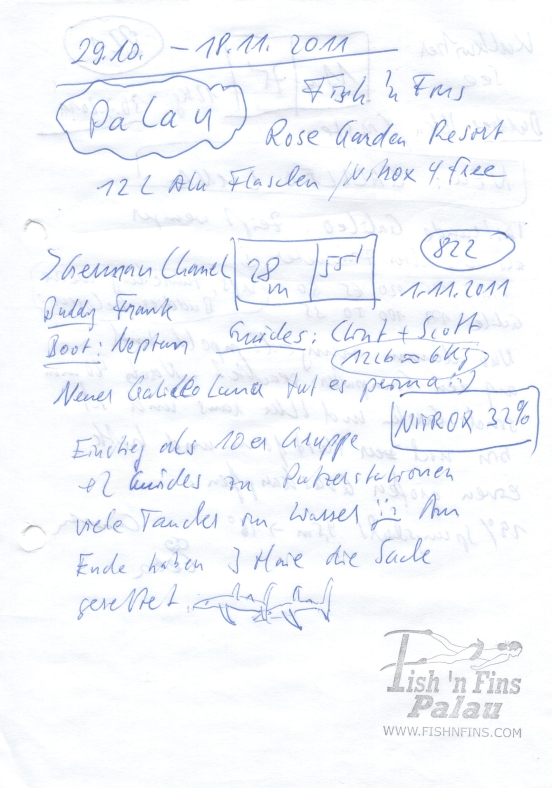 29.10. – 18.11. 2011
Palau
Fish 'n Fins
Rose Garden Resort
12 L Alu Flaschen / Nitrox 4 free
German Chanel
28 m
55'
822
1.11.2011
Buddy Frank
Boot: Neptun
Guides: Clint + Scott
12 lb ≈ 6 kg
Neuer Galileo Luna tut es prima :)
NITROX 32%
Einstieg als 10er Gruppe
+2 Guides zu Putzerstationen
viele Taucher im Wasser Am
Ende haben 3 Haie die Sache
gerettet.
Fish 'n Fins
Palau
WWW.FISHNFINS.COM